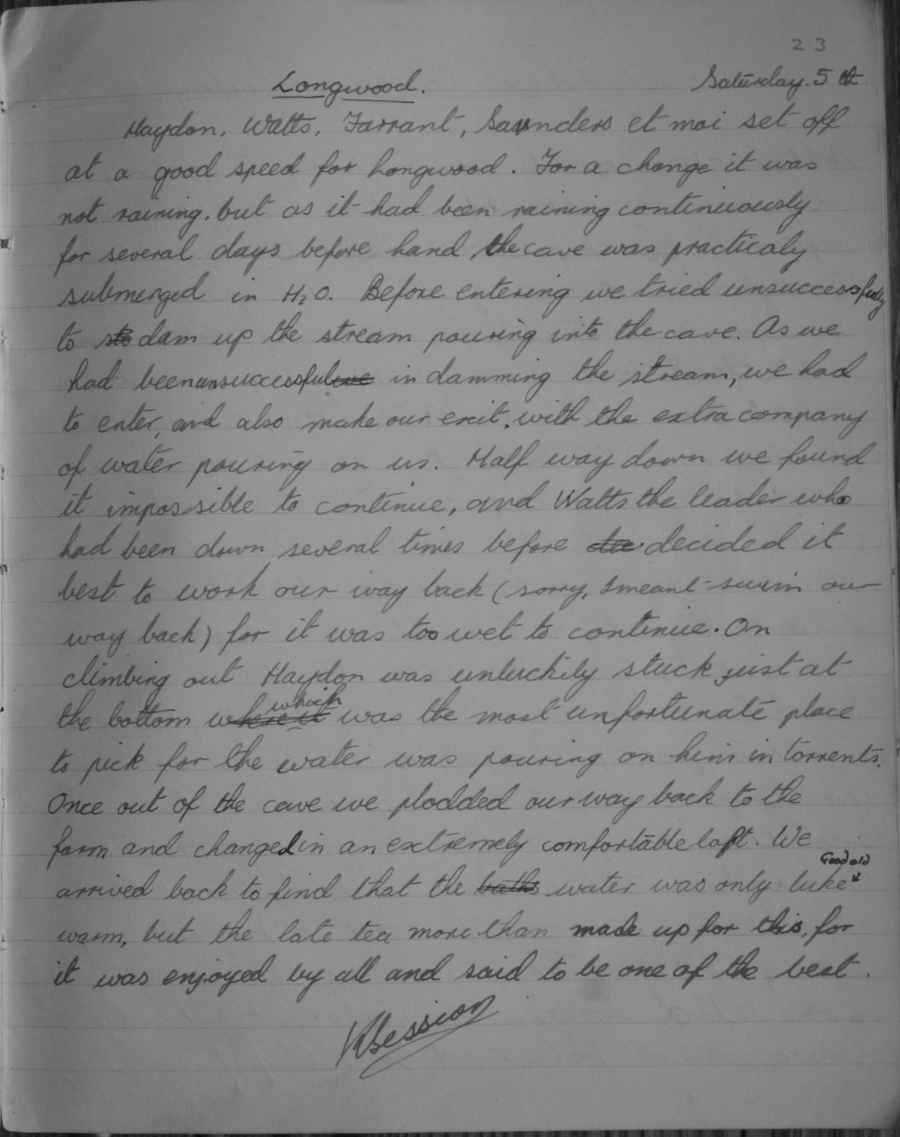 23
Longwood. Saturday. 5th
Haydon, Watts, Farrant, Saunders et moi set off
at a good speed for Longwood. For a change it was
not raining, but as it had been raining continuously
for several days before hand, the cave was practicaly
submerged in H2O. Before entering we tried unsuccessfully
to dam up the stream pouring into the cave. As we
had been unsuccessful in damming the stream, we had
to enter, and also make our exit, with the extra company
of water pouring on us. Half way down we found
it impossible to continue, and Watts the leader who
had been down several times before decided it
best to work our way back (sorry, I meant swim our
way back) for it was too wet to continue. On
climbing out Haydon was unluckily stuck just at
the bottom which was the most unfortunate place
to pick for the water was pouring on him in torrents.
Once out of the cave we plodded our way back to the
farm and changed in an extremely comfortable loft. We
Good old
arrived back to find that the baths water was only luke
warm, but the late tea more than made up for this, for
it was enjoyed by all and said to be one of the best.
Session